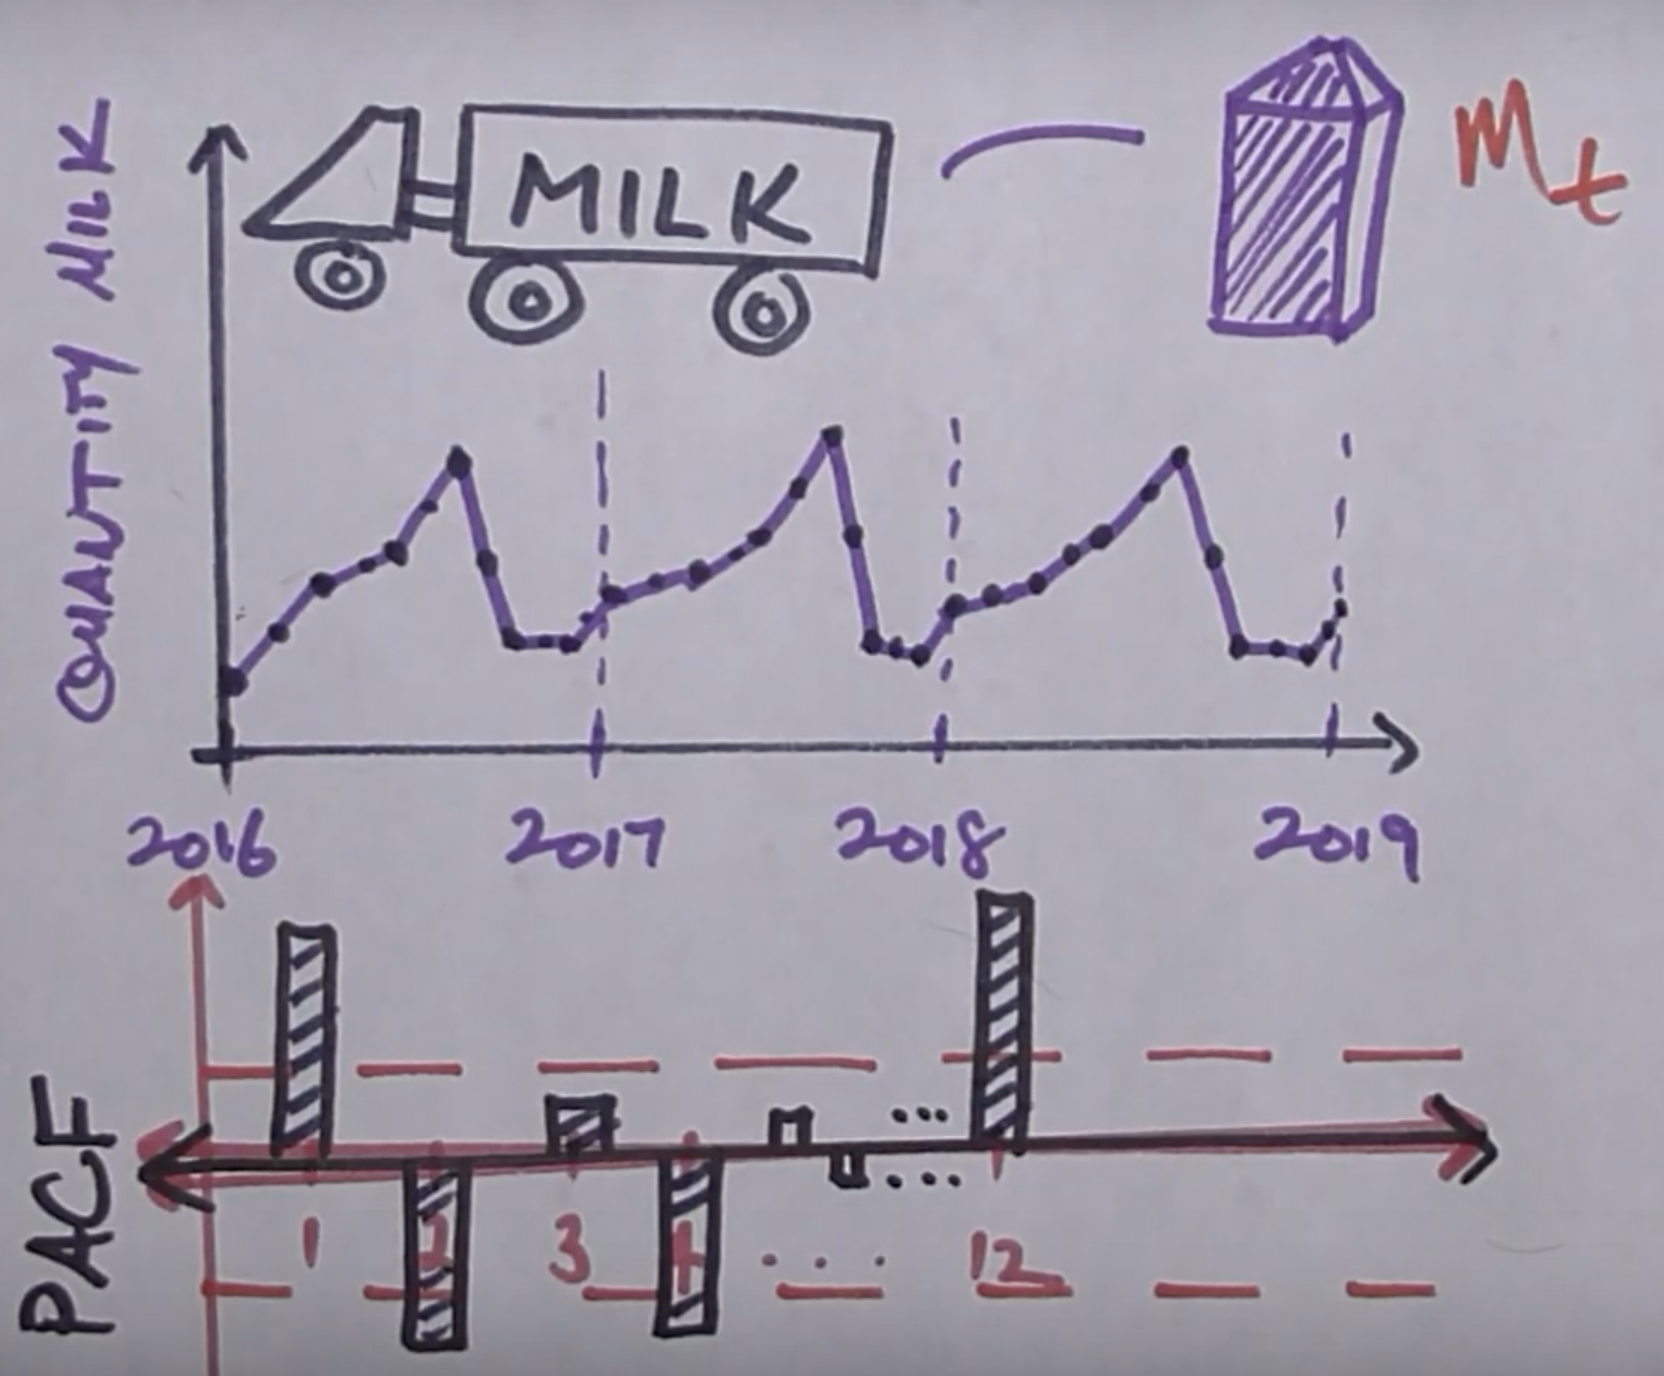 QUANTITY MILK
MILK
mt
2016 2017 2018 2019
PACF
1 2 3 4 ... 12